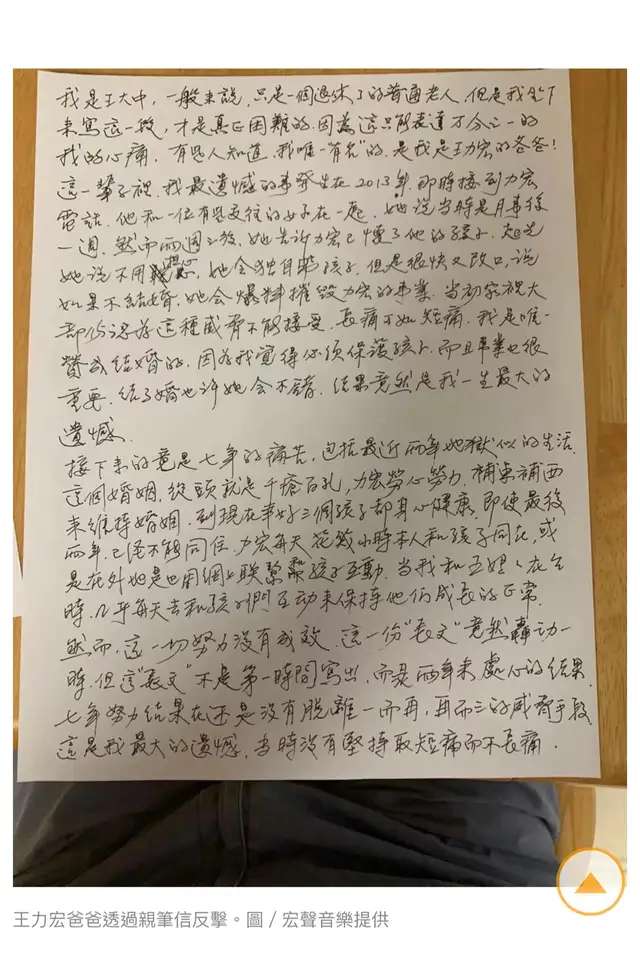 我是王大中，一般來說，只是一個退休了的普通老人。但是我坐下
來寫這一段，才是真正困難的。因為這只能表達万分之一的
我的心痛。有些人知道，我唯一"有名"的，是我是王力宏的爸爸！
這一輩子裡，我最遺憾的事發生在2013年，即時接到力宏
電話，他和一位有些交往的女子在一起。她說當時是月事後
一週。然而兩週之後，她告訴力宏已懷了他的孩子。起先
她說不用擔心，她会独自帶孩子。但是很快又改口，說
如果不結婚，她会爆料摧毀力宏的事業。当初家親大
部份認為這種威脅不能接受，長痛不如短痛。我是唯一
贊成結婚的。因為我覺得必須保護孩子，而且事業也很
重要，結了婚也许她会不錯，結果竟然是我一生最大的
遺憾。
接下來的竟是七年的痛苦，包括最近兩年地獄似的生活。
這個婚姻，從頭就是千瘡百孔，力宏勞心勞力，補東補西
來維持婚姻，到現在幸好三個孩子都身心健康，即使最後
兩年，已经不能同住，力宏每天花幾小時本人和孩子同在，或
是在外地是也用網上联繫和孩子互動。当我和五嫂人在台
時，几乎每天去和孩子們互动來保持他们成長的正常。
然而，這一切努力沒有成效。這一份"長文"竟然轟动一
時，但這"長文"不是第一時間寫出，而是兩年來處心的結果。
七年努力結果在还是沒有脫離一而再，再而三的威脅手段
這是我最大的遺憾，当時沒有堅持取短痛而不長痛。
王力宏爸爸透過親筆信反擊。圖／宏聲音樂提供